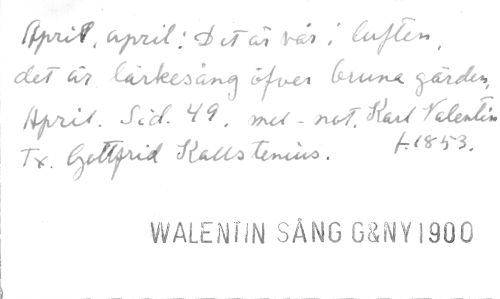 April, april: Det är vår i luften,
det är lärkesång öfver bruna gärden,
April. Sid. 49. mel - not. Karl Valentin
Tx. Gottfrid Kallstenius. f. 1853.
WALENTIN SÅNG G&NY 1900